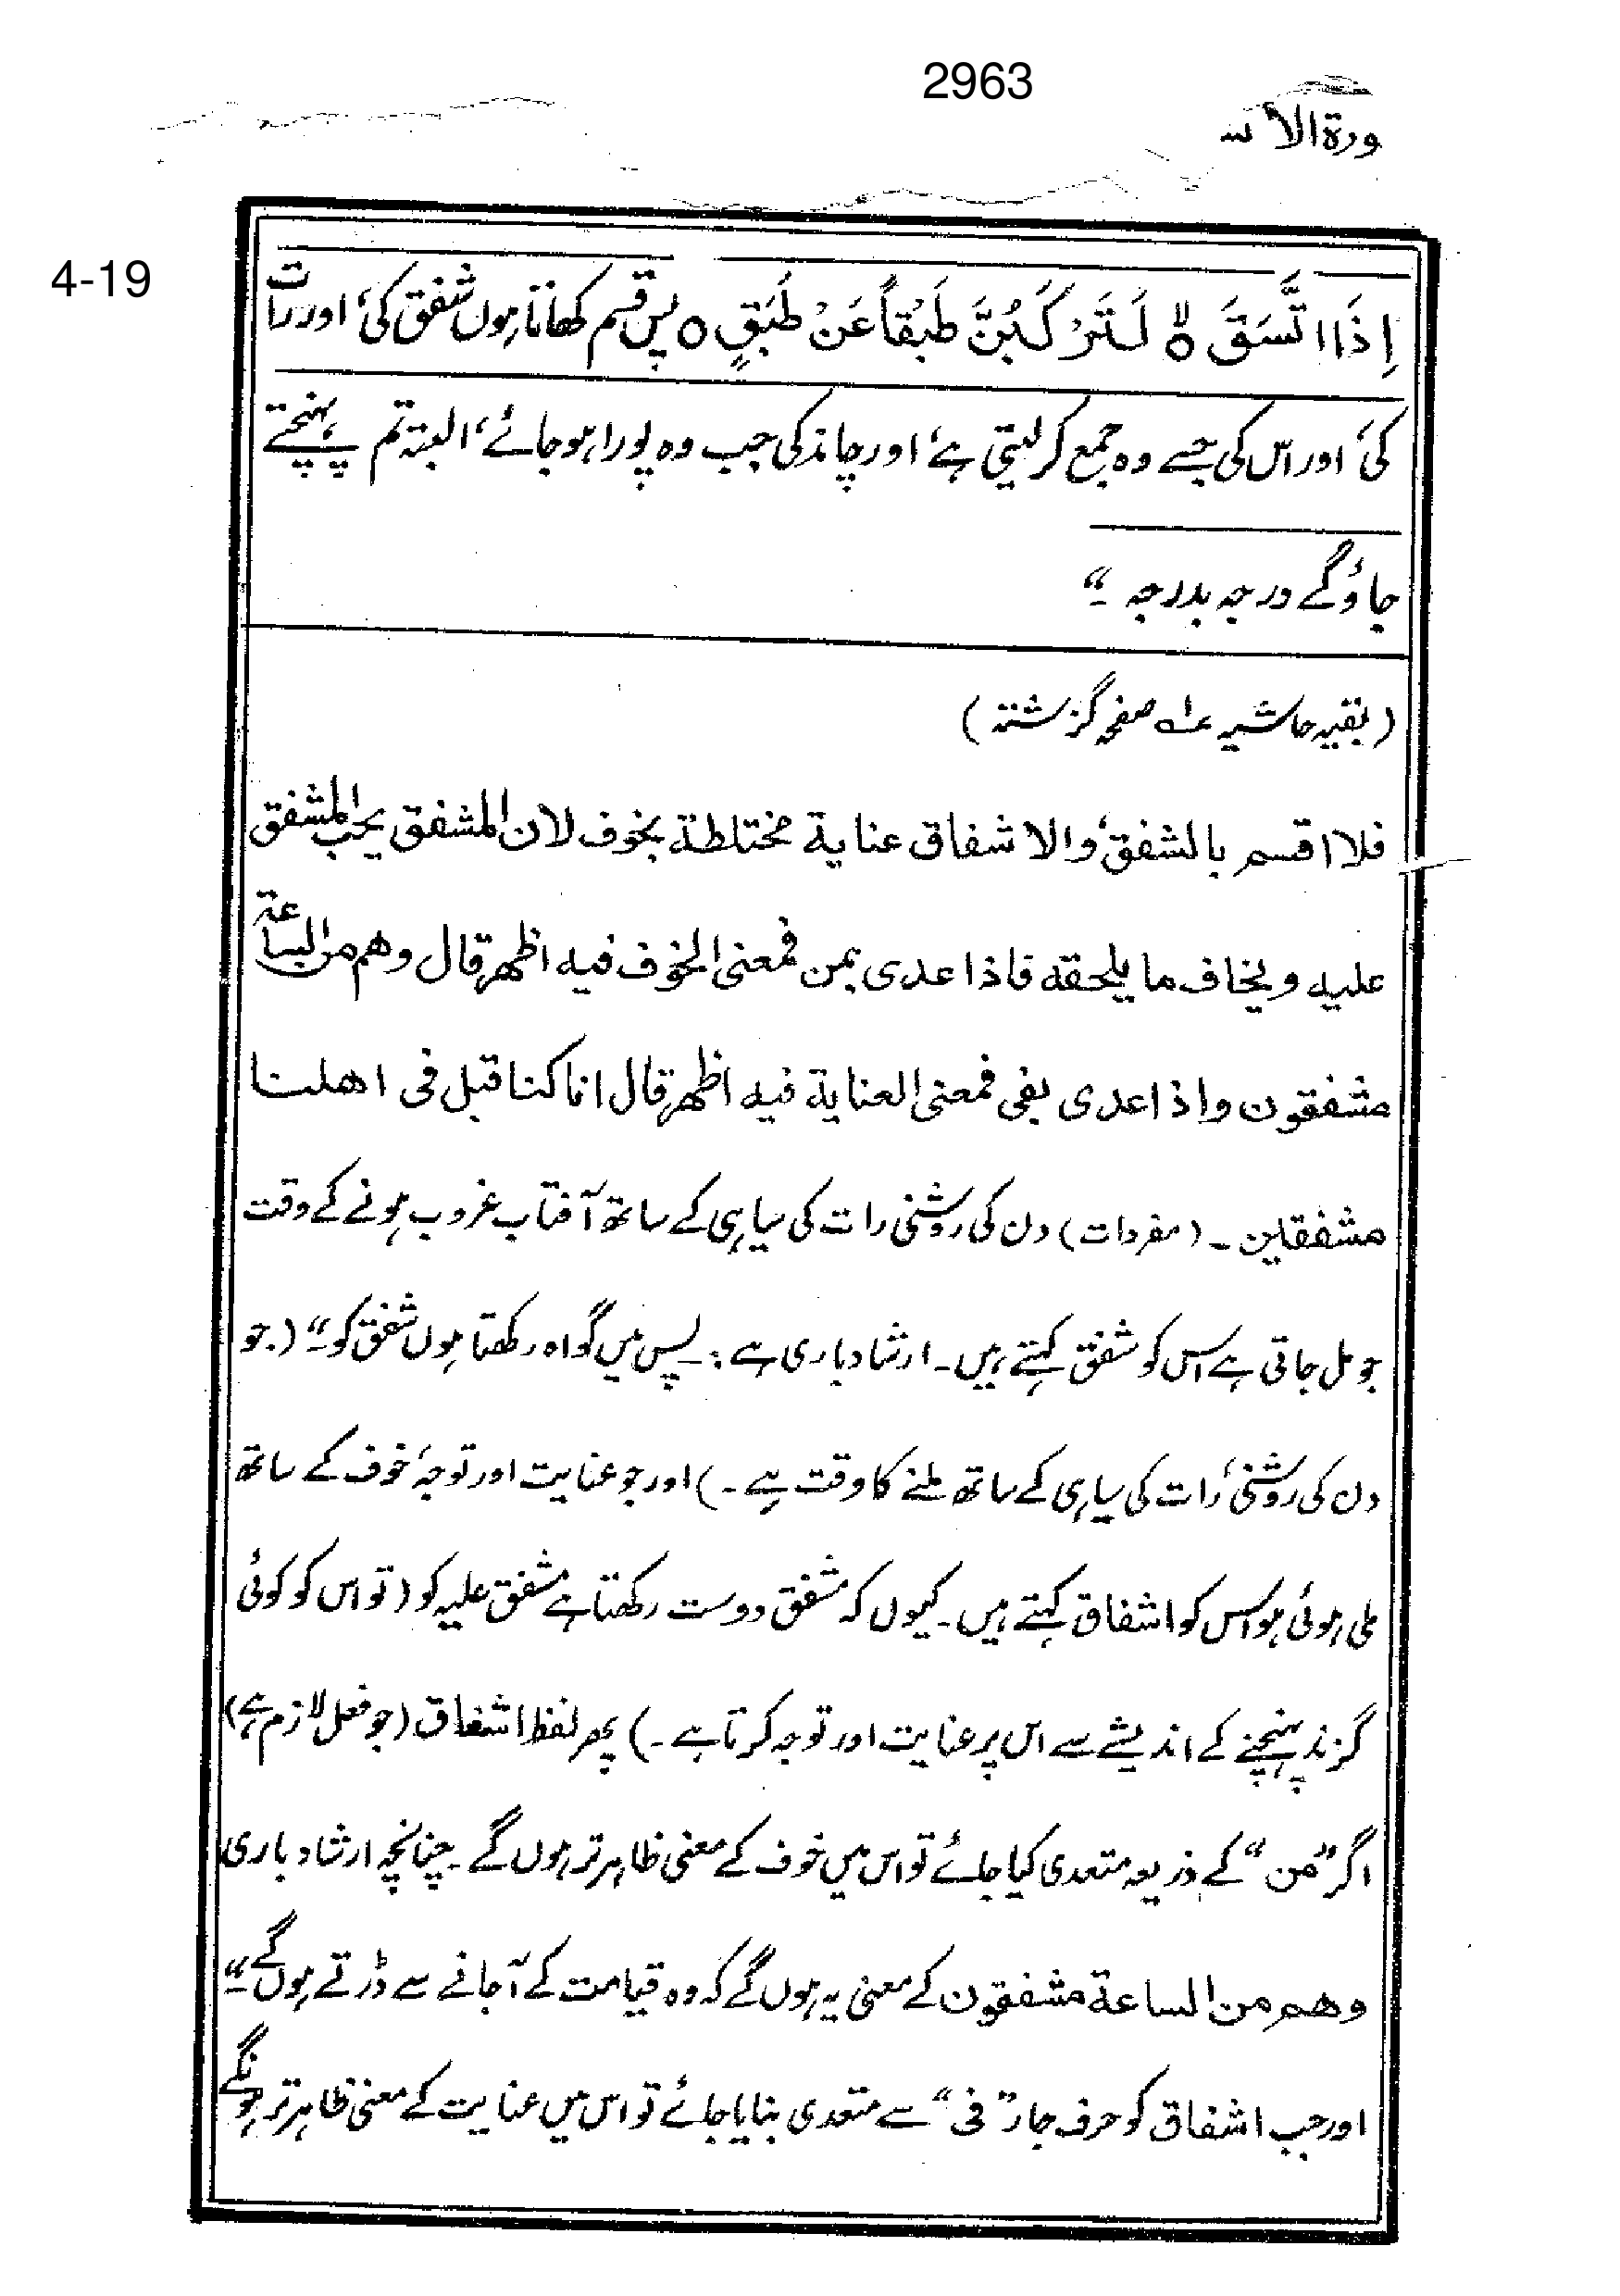 2963
ورة الا
4-19
اِذَا اتَّسَقَ ۝ۙ لَتَرْكَبُنَّ طَبَقاً عَنْ طَبَقٍ ۝ پس قسم کھاتا ہوں شفق کی، اور رات
کی، اور اس کی جسے وہ جمع کر لیتی ہے، اور چاند کی جب وہ پورا ہو جائے، البتہ تم پہنچتے
جاؤ گے درجہ بدرجہ ۔"
(بقیہ حاشیہ ۱ صفحہ گزشتہ)
فلا اقسم بالشفق، والاشفاق عناية مختلطة بخوف لان المشفق يحب المشفق
عليه ويخاف ما يلحقه فاذا عدى بمن فمعنى الخوف فيه اظهر قال وهم من الساعة
مشفقون واذا عدى بفى فمعنى العناية فيه اظهر قال انا كنا قبل فى اهلنا
مشفقين ۔ (مفردات) دن کی روشنی رات کی سیاہی کے ساتھ آفتاب غروب ہونے کے وقت
جو مل جاتی ہے اس کو شفق کہتے ہیں۔ ارشاد باری ہے : پس میں گواہ رکھتا ہوں شفق کو۔" (جو
دن کی روشنی، رات کی سیاہی کے ساتھ ملنے کا وقت ہے ۔) اور جو عنایت اور توجہ، خوف کے ساتھ
ملی ہوئی ہو اس کو اشفاق کہتے ہیں۔ کیوں کہ مشفق دوست رکھتا ہے مشفق علیہ کو (تو اس کو کوئی
گزند پہنچنے کے اندیشے سے اس پر عنایت اور توجہ کرتا ہے ۔) پھر لفظ اشفاق (جو فعل لازم ہے)
اگر "من" کے ذریعہ متعدی کیا جائے تو اس میں خوف کے معنی ظاہر تر ہوں گے ۔ چنانچہ ارشاد باری
وهم من الساعة مشفقون کے معنی یہ ہوں گے کہ وہ قیامت کے آجانے سے ڈرتے ہوں گے۔"
اور جب اشفاق کو حرف جار "فی" سے متعدی بنایا جائے تو اس میں عنایت کے معنی ظاہر تر ہونگے